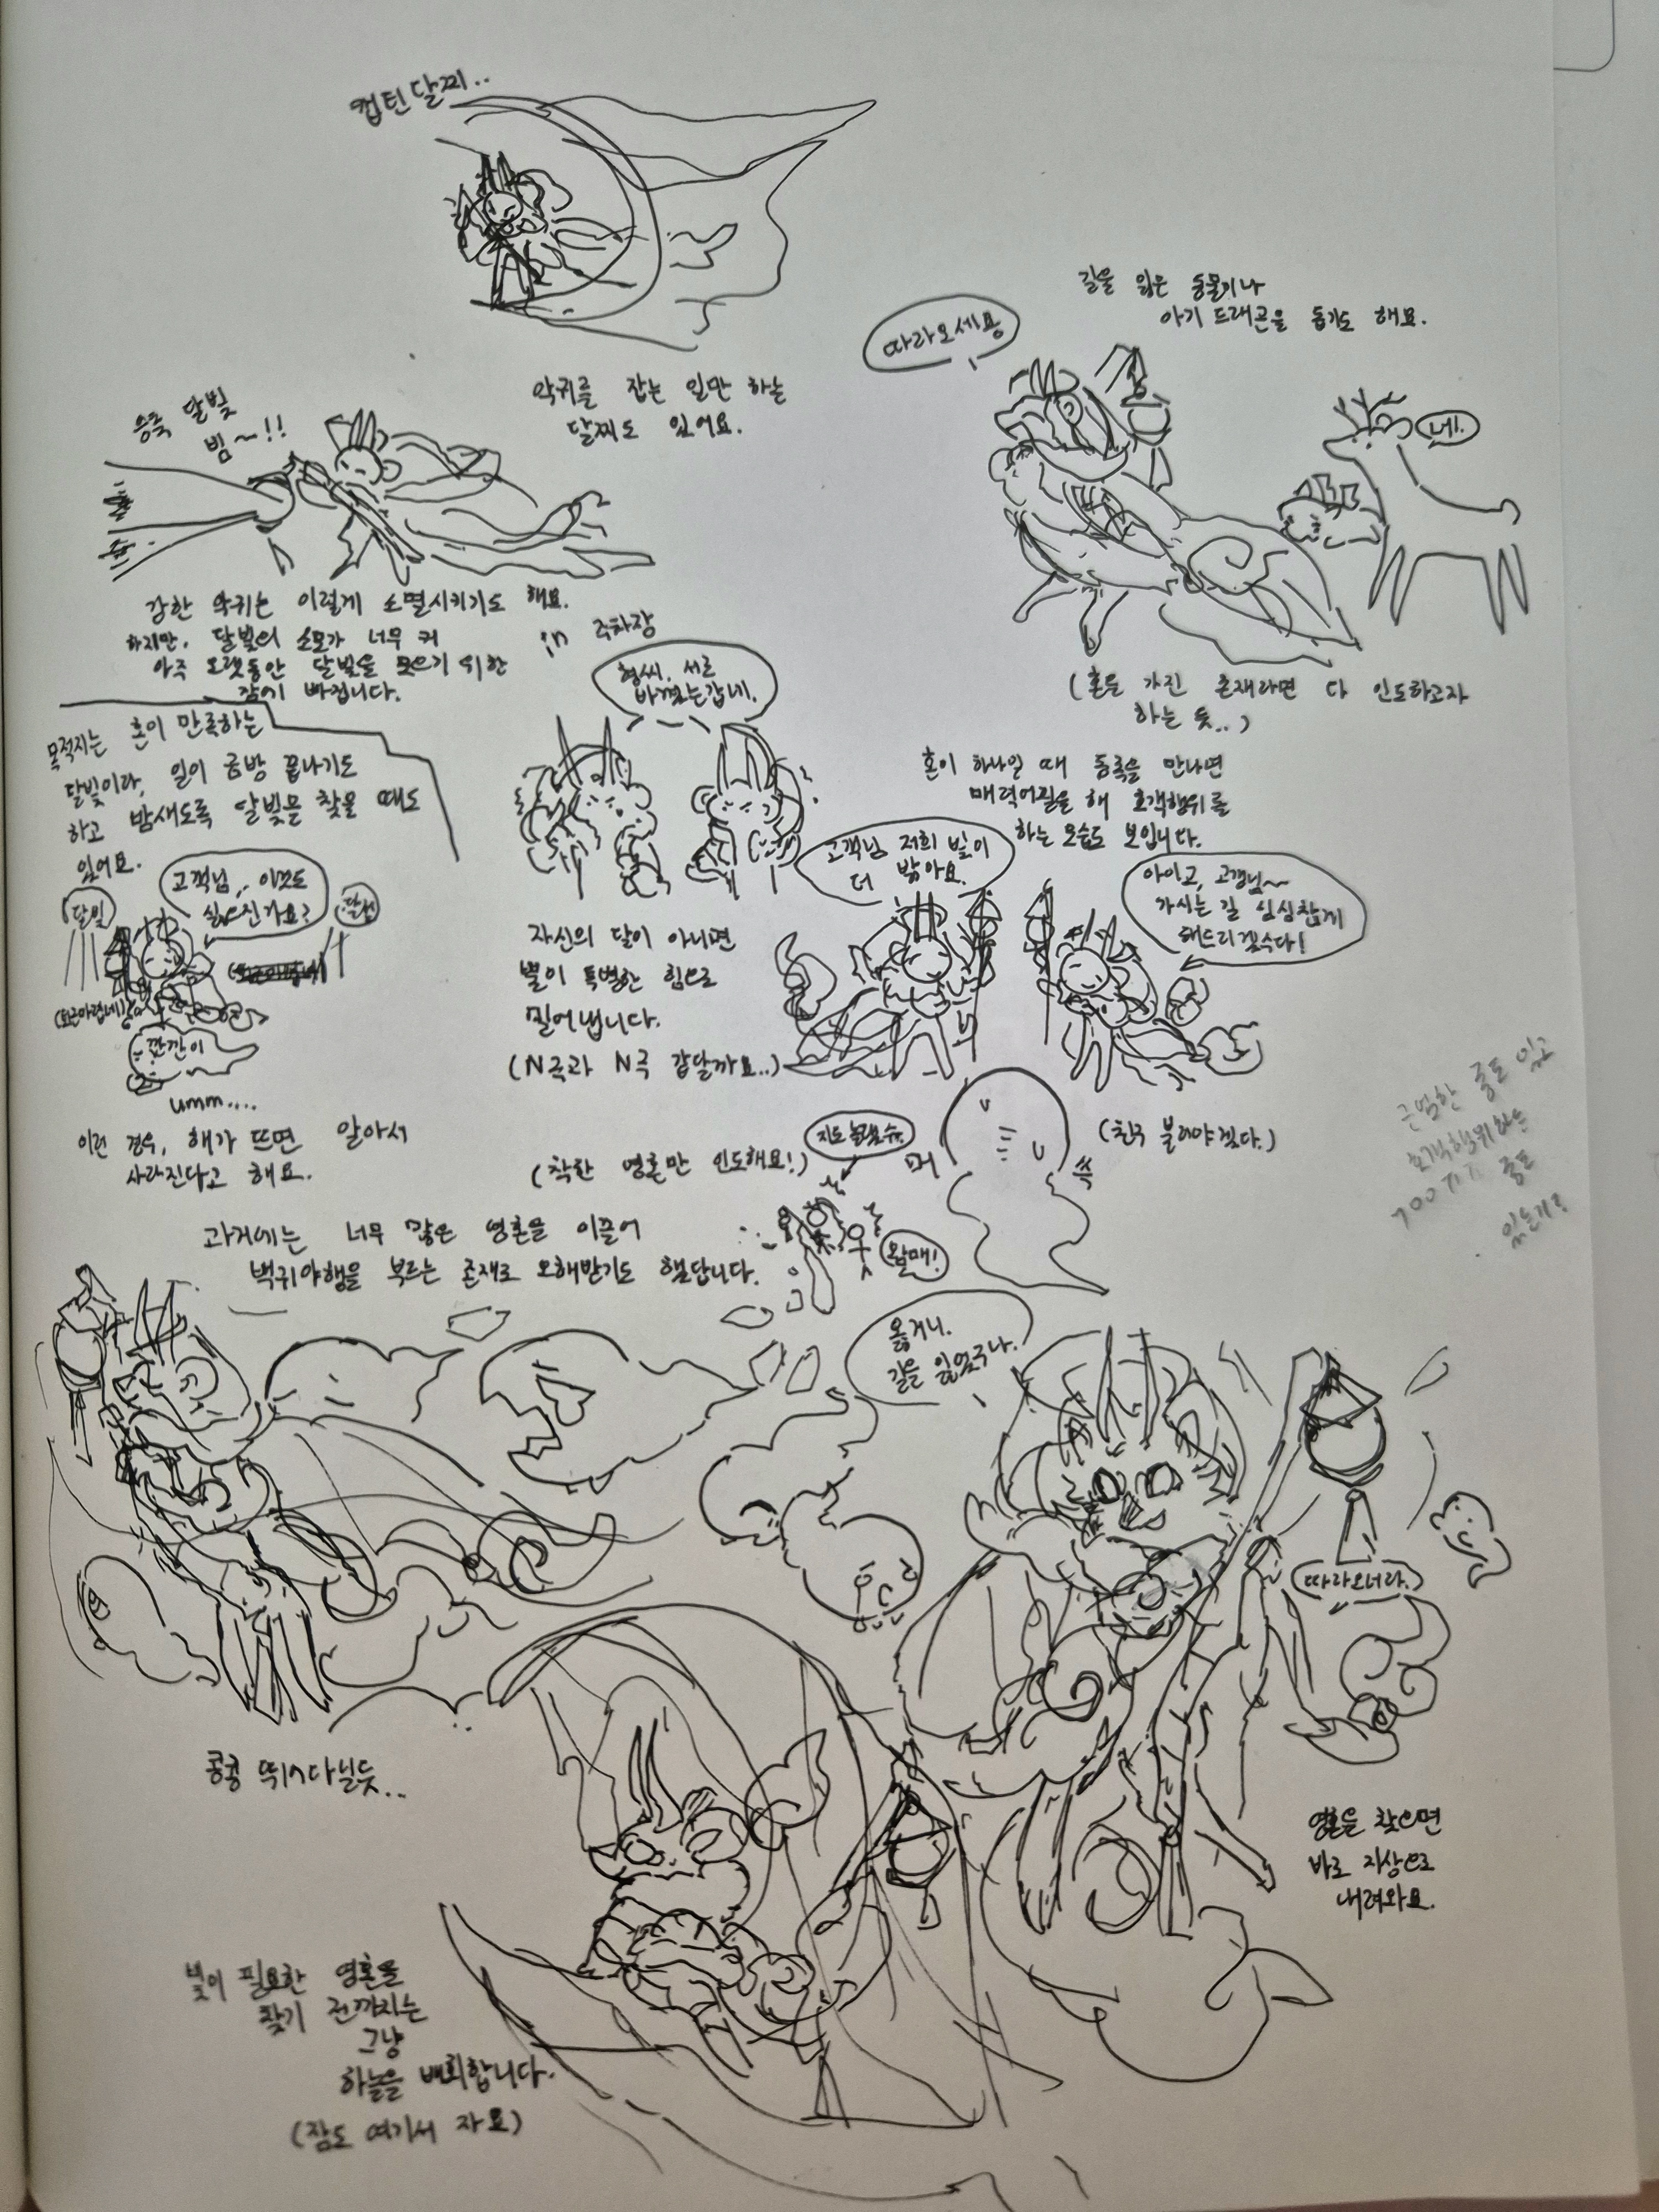 컵틴 달찌..
악귀를 잡는 일만 하는
달찌도 있어요.
길을 잃은 동물이나
아기 드래곤을 돕기도 해요.
따라오세용
네!
달빛
빔~!!
강한 악귀는 이렇게 소멸시키기도 해요.
하지만, 달빛의 소모가 너무 커
아주 오랫동안 달빛을 모으기 위한
잠에 빠집니다.
in 주차장
형씨, 서로
바꼈는갑네.
(혼을 가진 존재라면 다 인도하고자
하는 듯..)
목적지는 혼이 만족하는
달빛이라, 일이 금방 끝나기도
하고 밤새도록 달빛을 찾을 때도
있어요.
혼이 하나일 때 동족을 만나면
매력어필을 해 호객행위를
하는 모습도 보입니다.
고객님.. 이것도
싫으신가요?
달빛
깐깐이
umm....
이런 경우, 해가 뜨면 알아서
사라진다고 해요.
자신의 달이 아니면
뿔이 특별한 힘으로
밀어냅니다.
(N극과 N극 같달까요..)
고객님 저희 빛이
더 밝아요.
아이고, 고갱님~
가시는 길 심심찮게
해드리겠수다!
(착한 영혼만 인도해요!)
(친구 불러야겠다.)
머
쓱
왐매!
근엄한 쫑도 있고
호객행위하는
쫑도
있는거?
과거에는 너무 많은 영혼을 이끌어
백귀야행을 부르는 존재로 오해받기도 했답니다.
옳거니.
길을 잃었구나.
따라오너라.
콩콩 뛰어다닐듯..
영혼을 찾으면
바로 지상으로
내려와요.
빛이 필요한 영혼을
찾기 전까지는
그냥
하늘을 배회합니다.
(잠도 여기서 자요)